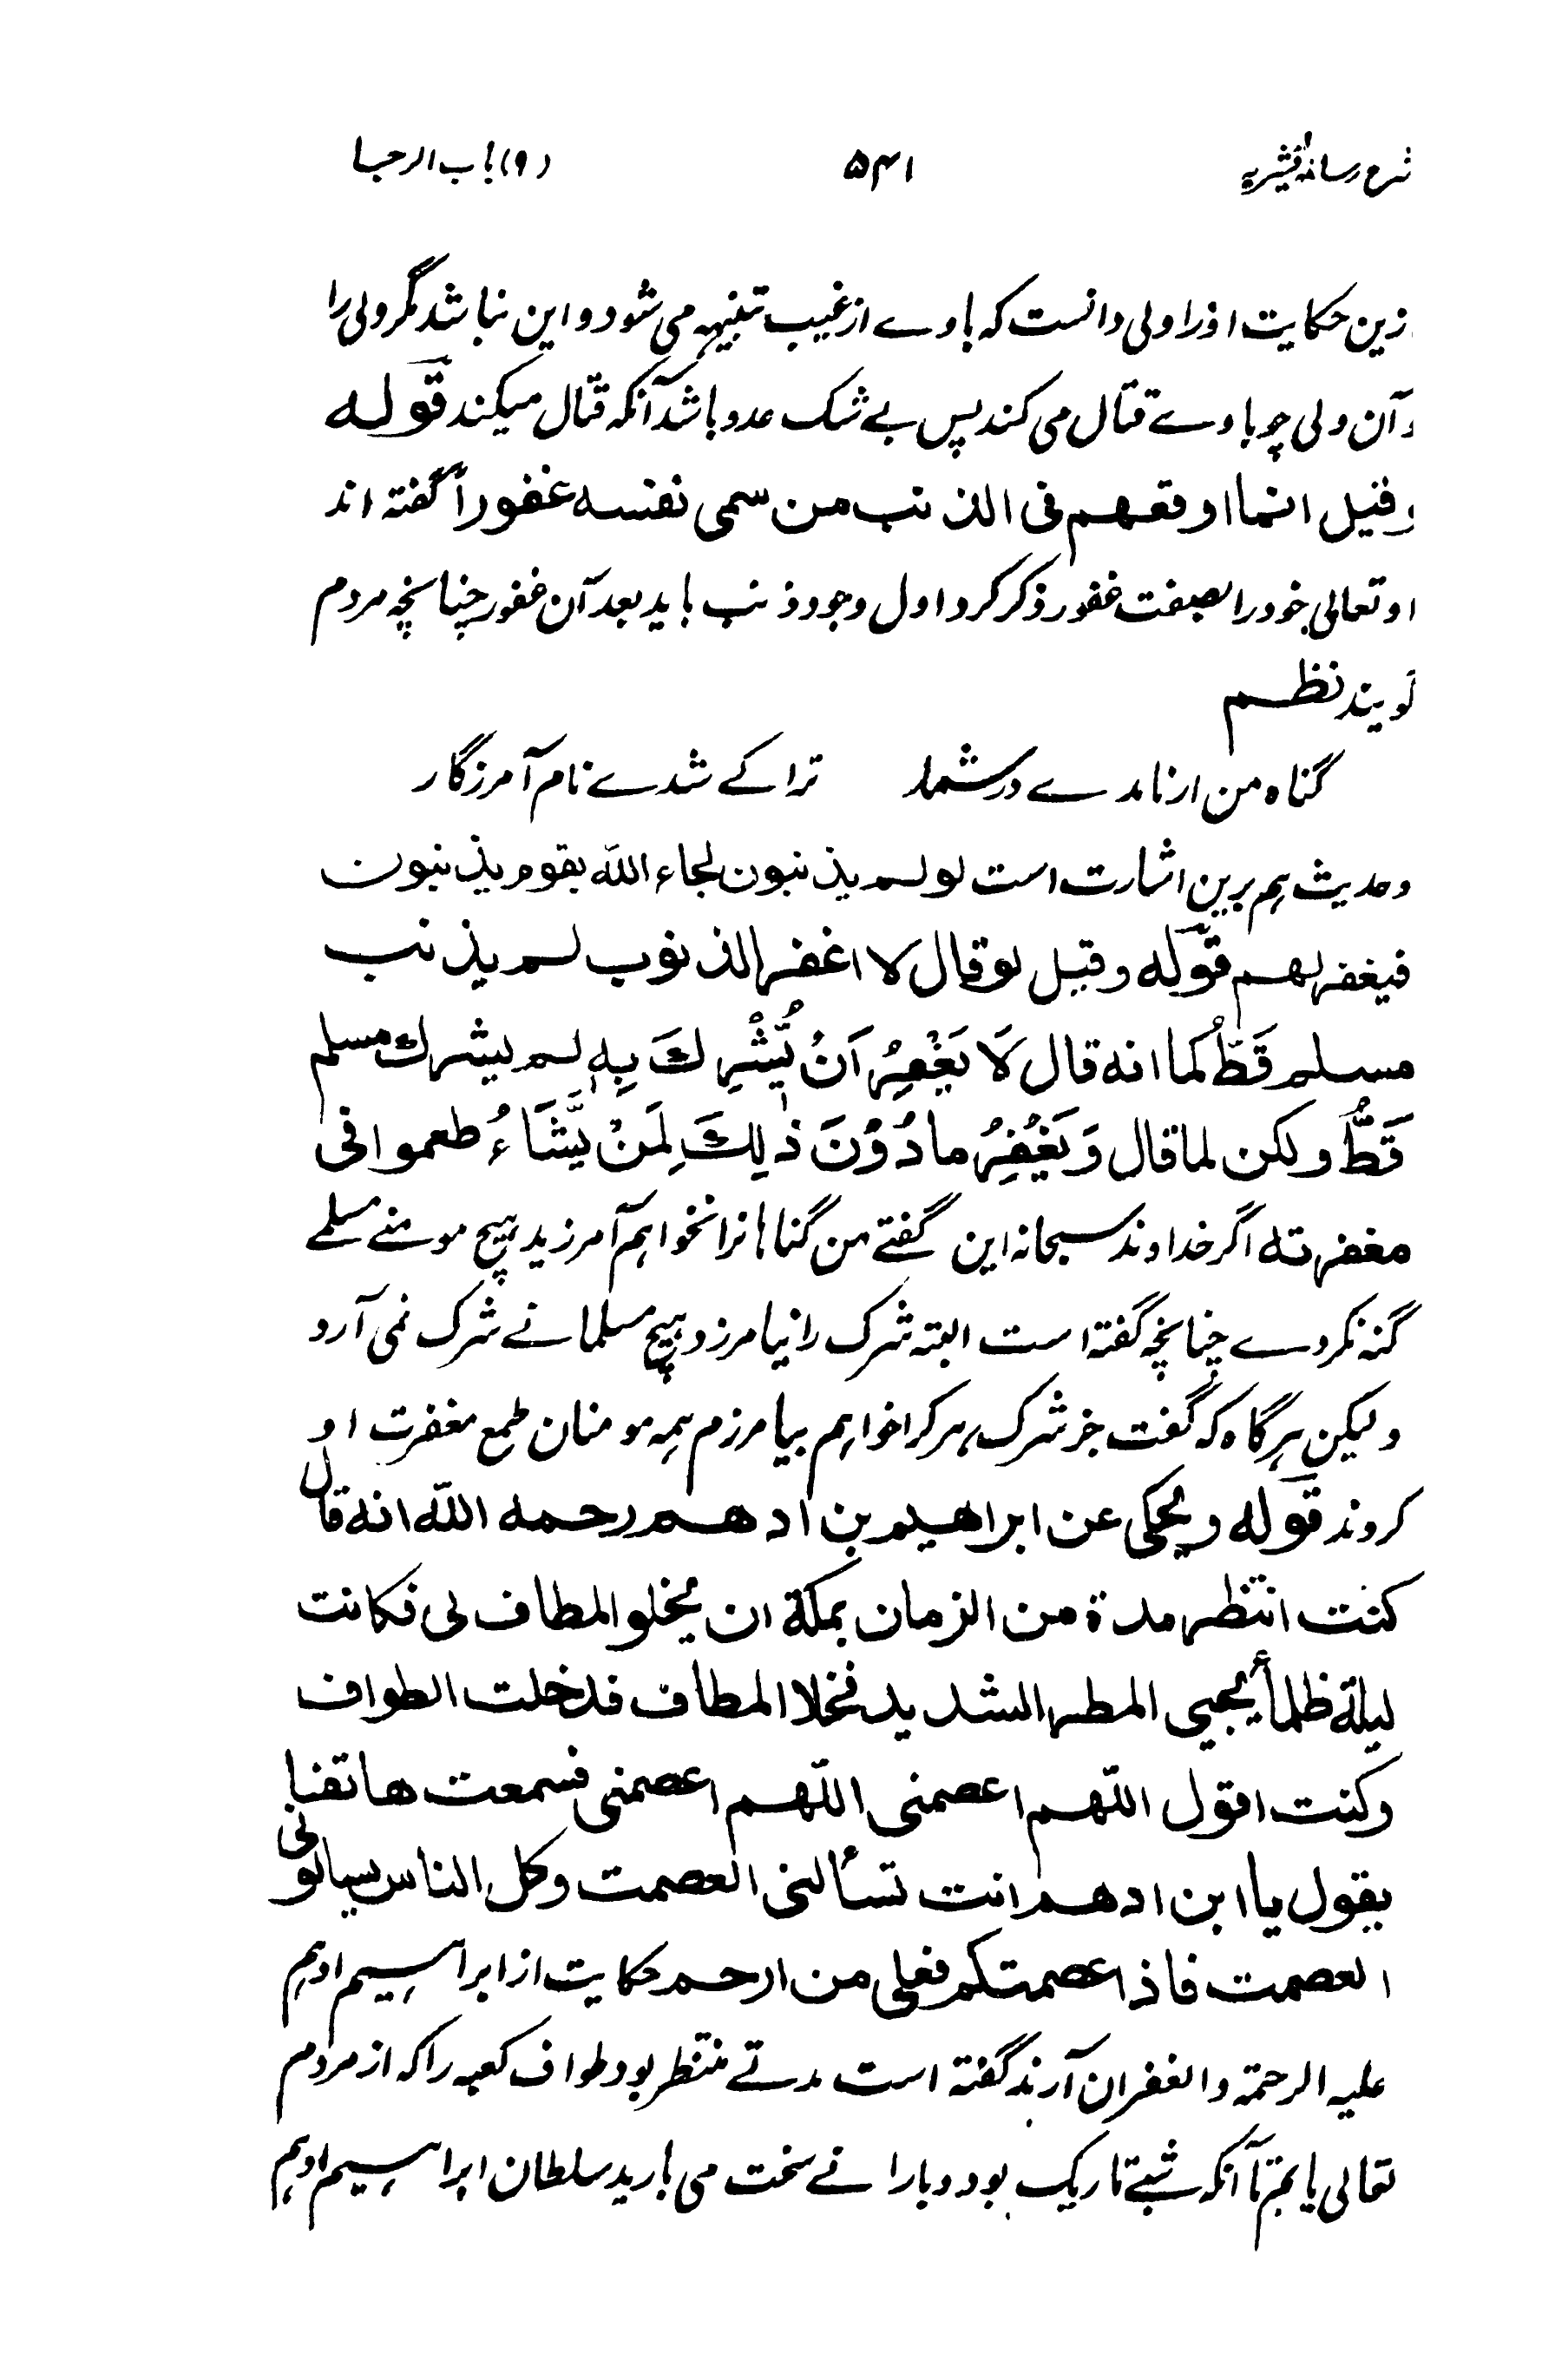 شرح رسالہ قشیریہ ۵۴۱ (۹) باب الرجا
ازین حکایت او را ولی دانست کہ باوے از غیب تنبیہہ می شود و این نباشد مگر ولی را
و آن ولی چو باوے قتال می کند پس بے شک عدو باشد آنکہ قتال میکند قولہ
وقیل انما اوقعهم فی الذنب من سمی نفسه غفوراً گفتہ اند
او تعالی خود را بصفت غفور ذکر کرد اول وجود ذنب باید بعد آن غفور چنانچہ مردم
گویند نظم
گناہ من ار نامدے در شمار ترا کے شدے نام آمرزگار
و حدیث ہم برین اشارت است لولم یذنبون لجاء الله بقوم یذنبون
فیغفر لهم قوله وقیل لو قال لا اغفر الذنوب لم یذنب
مسلم قَطُّ کما انه قال لَا یَغْفِرُ اَنْ یُّشْرِكَ بِهٖ لم یشرك مسلم
قَطُّ ولکن لما قال وَیَغْفِرُ مادُوْنَ ذٰلِكَ لِمَنْ یَّشَاءُ طعموا فی
مغفرته اگر خداوند سبحانہ این گفتے من گناہانرا نخواہم آمرزید ہیچ مومنے مسلمے
گنہ نکردے چنانچہ گفتہ است البتہ شرک را نیامرزد ہیچ مسلمانے شرک نمی آرد
ولیکن ہرگاہ کہ گفت جز شرک ہر کرا خواہم بیامرزم ہمہ مومنان طمع مغفرت او
کردند قوله ویحکی عن ابراهیم بن ادهم رحمه الله انه قال
کنت انتظر مدة من الزمان بمکة ان یخلو المطاف لی فکانت
لیلة ظلمأ یجیی المطر الشدید فخلا المطاف فدخلت الطواف
وکنت اقول اللّهم اعصمنی اللّهم اعصمنی فسمعت هاتفنا
یقول یا ابن ادهم انت تسألنی العصمت وکل الناس یسالونی
العصمت فاذا عصمتکم فعلی من ارحم حکایت از ابراہیم ادہم
علیہ الرحمۃ والغفران آرند گفتہ است مدتے منتظر بود طواف کعبہ را کہ از مردم
تعالی یابم تا آنکہ شبے تاریک بود و بارانے سخت می بارید سلطان ابراہیم ادہم